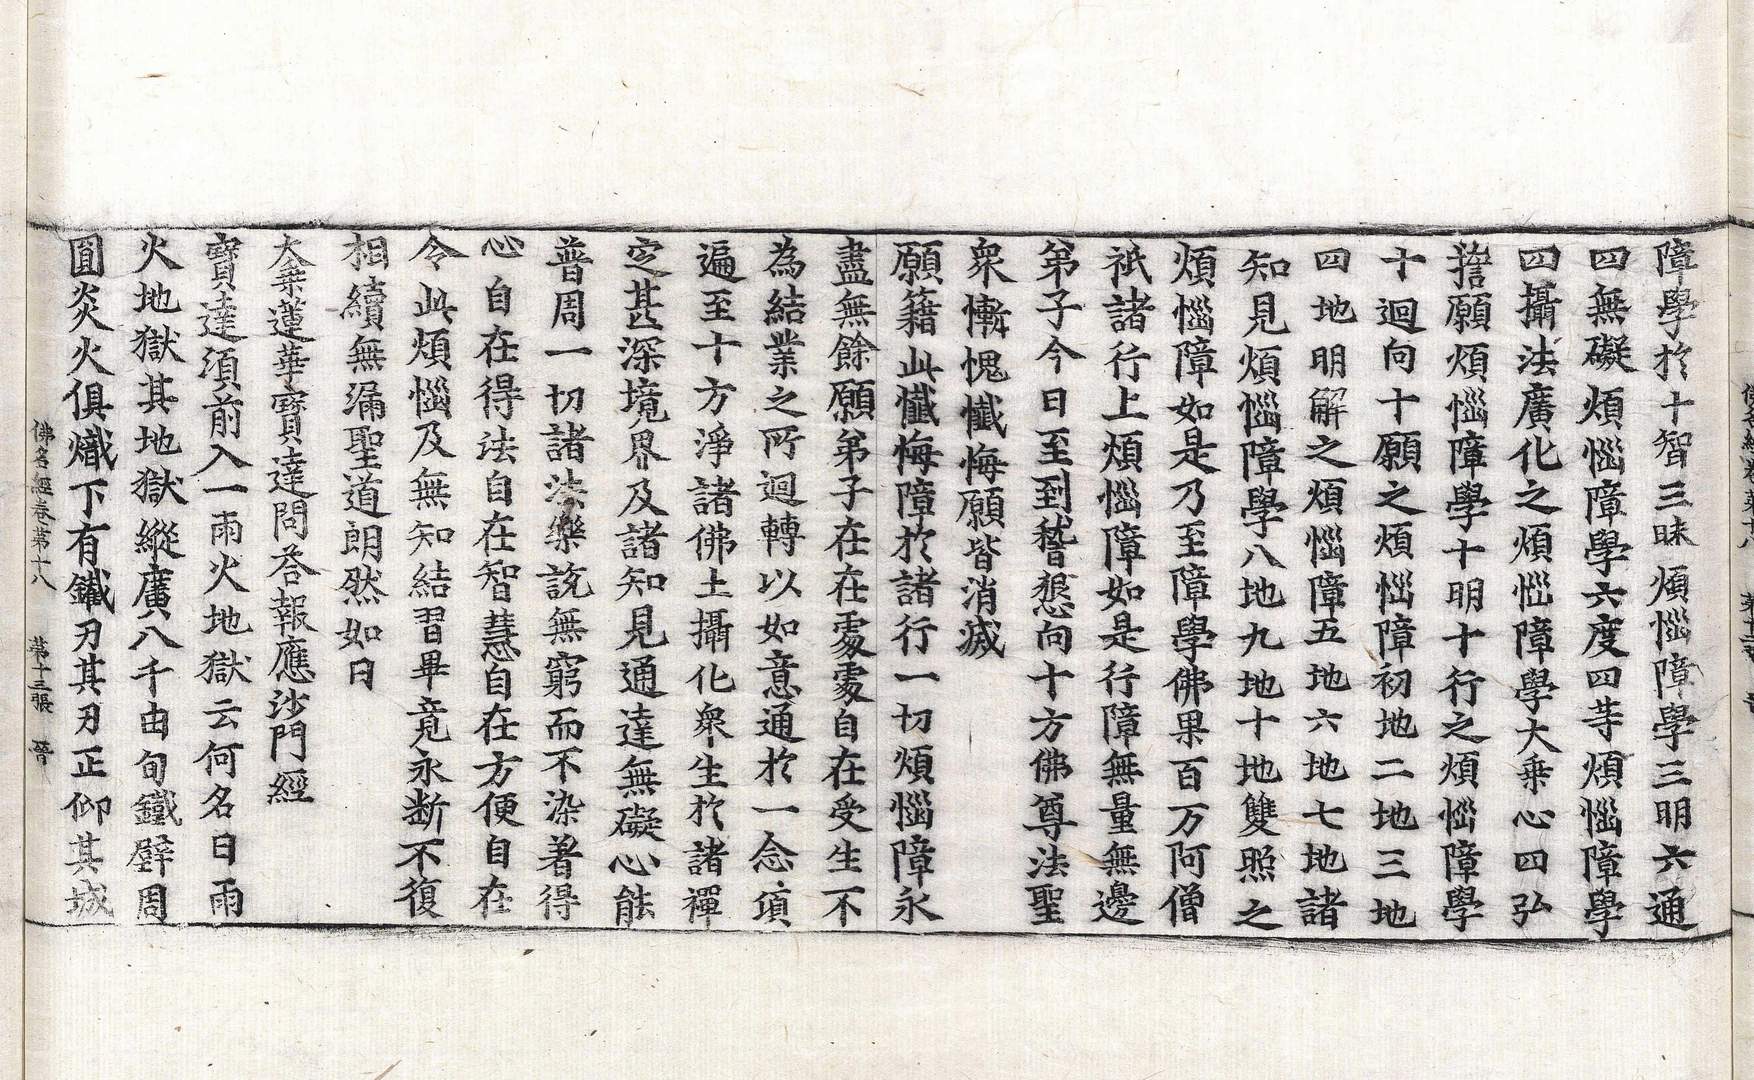 障學於十智三昧煩惱障學三明六通
四無礙煩惱障學六度四等煩惱障學
四攝法廣化之煩惱障學大乗心四弘
誓願煩惱障學十明十行之煩惱障學
十迴向十願之煩惱障初地二地三地
四地明解之煩惱障五地六地七地諸
知見煩惱障學八地九地十地雙照之
煩惱障如是乃至障學佛果百万阿僧
祇諸行上煩惱障如是行障無量無邊
弟子今日至到稽懇向十方佛尊法聖
衆慚愧懺悔願皆消滅
願籍此懺悔障於諸行一切煩惱障永
盡無餘願弟子在在處處自在受生不
為結業之所迴轉以如意通於一念項
遍至十方淨諸佛土攝化衆生於諸禪
定甚深境界及諸知見通達無礙心能
普周一切諸法樂說無窮而不染著得
心自在得法自在智慧自在方便自在
令此煩惱及無知結習畢竟永断不復
相續無漏聖道朗然如日
大乗蓮華寶達問荅報應沙門經
寶達須前入一雨火地獄云何名曰雨
火地獄其地獄縱廣八千由旬鐵壁周
圓炎火俱熾下有鐵刃其刃正仰其城
佛名經卷第十八 第十三張 晉